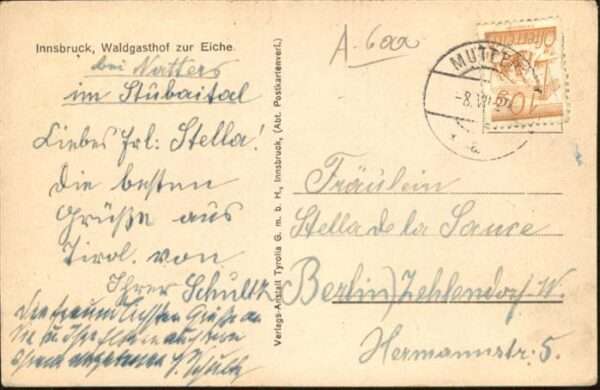 Innsbruck, Waldgasthof zur Eiche.
bei Natters
im Stubaital
Liebes Frl: Stella!
Die besten
Grüße aus
Tirol. von
Ihrer Schultz
Die freundlichsten Grüße an
Sie u.
Schultz
Verlags-Anstalt Tyrolia G. m. b. H., Innsbruck, (Abt. Postkartenverl.)
A. 6aa
MUTTERS
-8.VII
Österreich
10g
Fräulein
Stella de la Sauce
Berlin) Zehlendorf-W.
Hermannstr. 5.